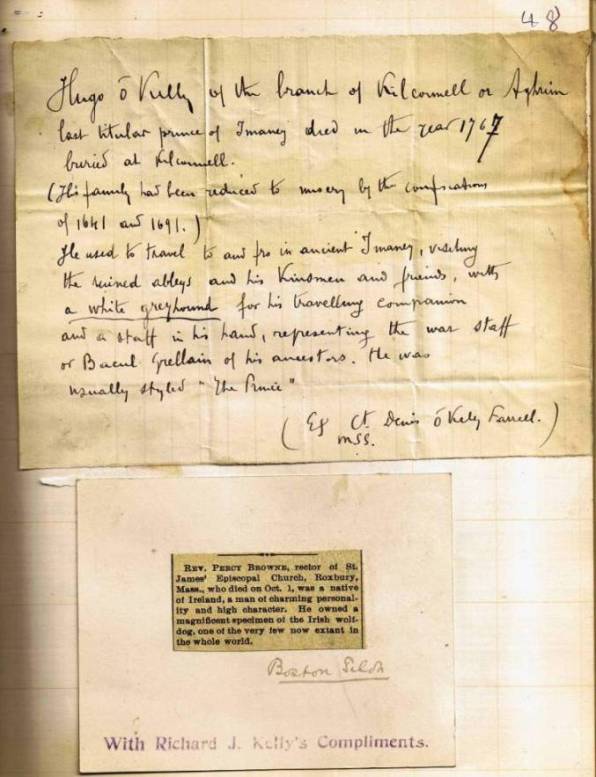 48
Hugo ō Kelly of the branch of Kilconnell or Aghrim
last titular prince of Imaney died in the year 1767
buried at Kilconnell.
(His family had been reduced to misery by the confiscations
of 1641 and 1691.)
He used to travel to and fro in ancient Imaney, visiting
the ruined abbeys and his Kinsmen and friends, with
a white greyhound for his travelling companion
and a staff in his hand, representing the war staff
or Bacul Grellain of his ancestors. He was
usually styled "The Prince"
( Ct Denis ō Kelly Farrell. )
MSS.
REV. PERCY BROWNE, rector of St.
James' Episcopal Church, Roxbury,
Mass., who died on Oct. 1, was a native
of Ireland, a man of charming personal-
ity and high character. He owned a
magnificent specimen of the Irish wolf-
dog, one of the very few now extant in
the whole world.
Boston
With Richard J. Kelly's Compliments.